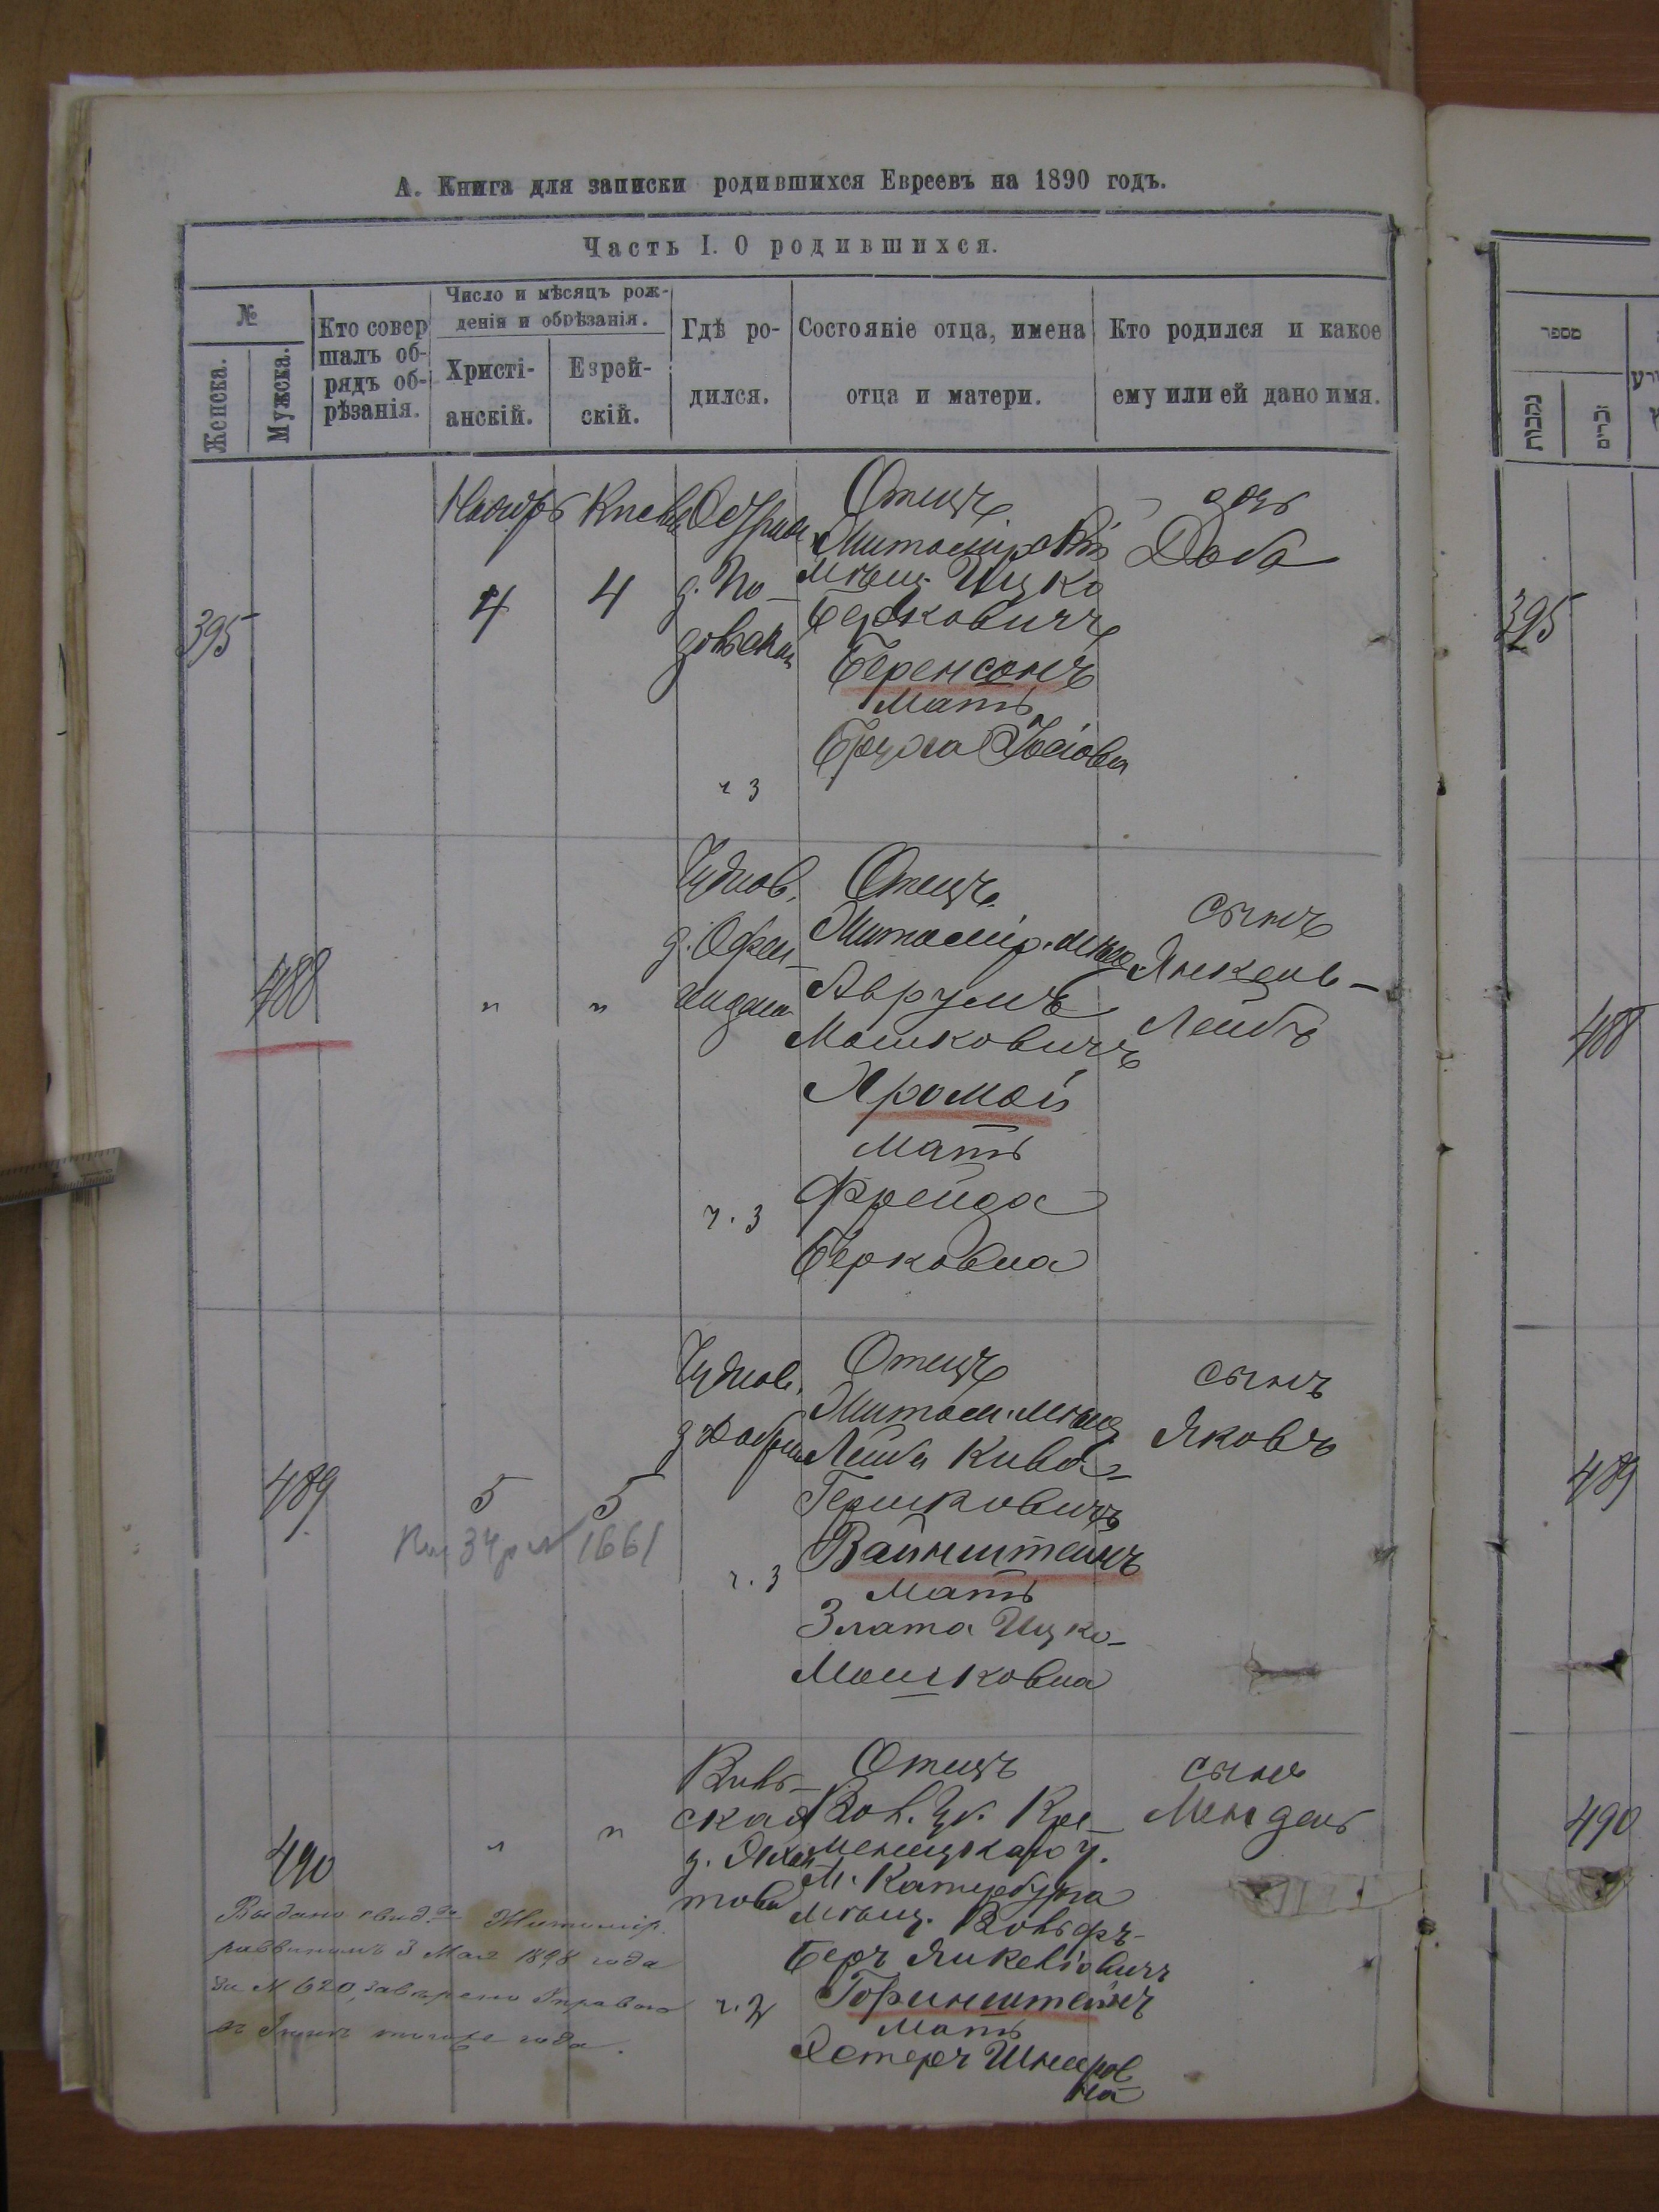 А. Книга для записки родившихся Евреевъ на 1890 годъ.
Часть I. О родившихся.
№
Женска.
Мужска.
Кто совер
шалъ об-
рядъ об-
рѣзанія.
Число и мѣсяцъ рож-
денія и обрѣзанія.
Христі-
анскій.
Еврей-
скій.
Гдѣ ро-
дился.
Состояніе отца, имена
отца и матери.
Кто родился и какое
ему или ей дано имя.
מספר
נקבות
זכרים
395
Ноября
4
Кислев
4
д. По-
ч 3
Отецъ
Житомірскій
мѣщ. Ицко
Берковичъ
Беренсонъ
мать
Іосіовна
дочь
Доба
395
488
"
"
Чуднов.
ч. 3
Отецъ
Житомір. мѣщ
Аврумъ
Мошковичъ
Хромой
мать
Фрейда
Берковна
сынъ
Янкель-
Лейбъ
488
489
5
5
1661
Чуднов.
ч. 3
Отецъ
Житом. мѣщ
Лейба Кива-
Гершковичъ
Вайнштейнъ
мать
Злата Ицко-
Мошковна
сынъ
Яковъ
489
490
"
"
Виль-
ская
ч. 2
Отецъ
Вол. гу. Кре-
менецкаго у.
м. Катербурга
мѣщ. Вольфъ-
Беръ Янкеліовичъ
Горинштейнъ
мать
Эстеръ Шмеров
на
сынъ
Мендель
490
Выдано свид.во Житомір.
раввиномъ 3 Мая 1898 года
за № 620, завѣрено Управою